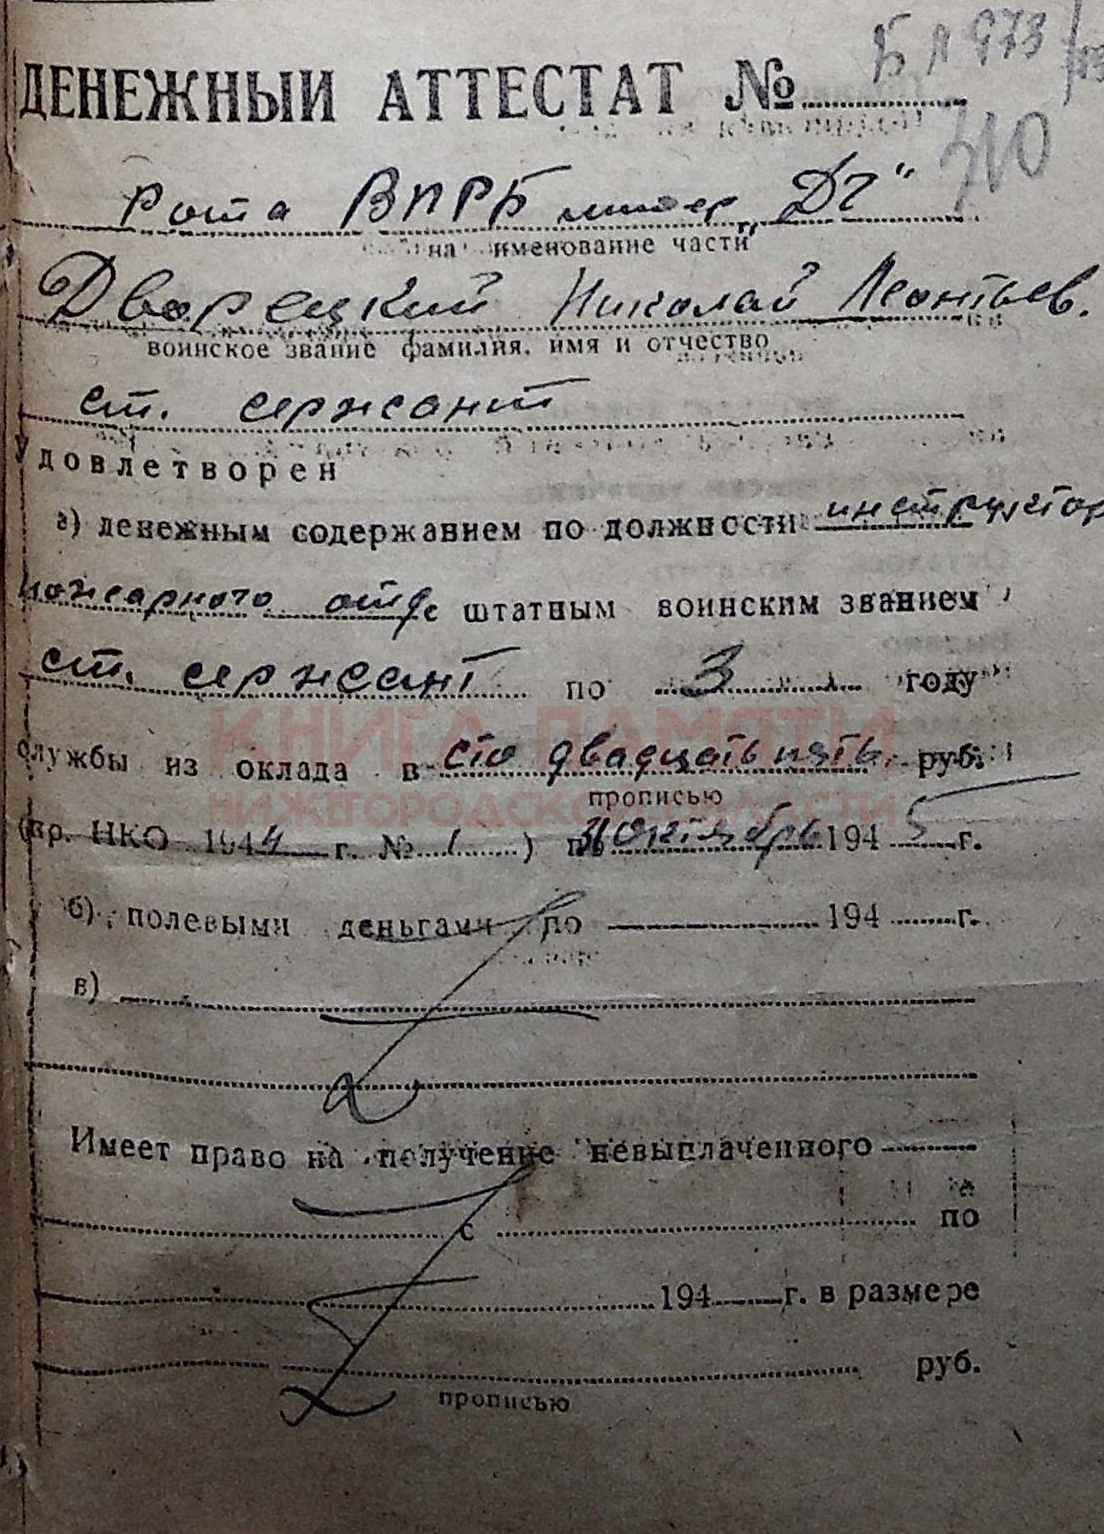 Б № 973
ДЕНЕЖНЫЙ АТТЕСТАТ №
310
Рота ВПРБ литер „ДТ"
наименование части
Дворецкий Николай Леонтьев.
воинское звание фамилия. имя и отчество
ст. сержант
Удовлетворен
а) денежным содержанием по должности инструктор
пожарного отд с штатным воинским званием
ст. сержант по 3 году
службы из оклада в сто двадцать пять руб.
прописью
КНИГА ПАМЯТИ
НИЖЕГОРОДСКОЙ ОБЛАСТИ
(пр. НКО 1944 г. № 1 ) по 31 октябрь 1945 г.
б) полевыми деньгами по 194 г.
в)
Имеет право на получение невыплаченного
с по
194 г. в размере
руб.
прописью